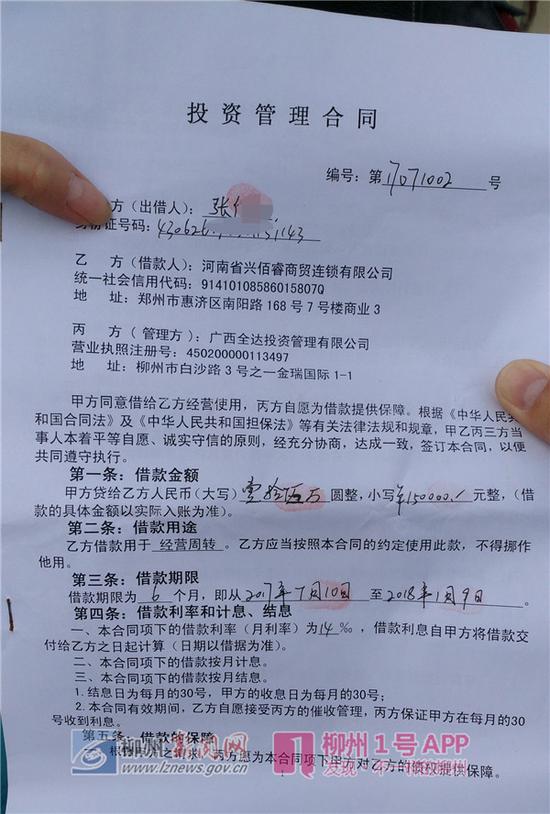 投资管理合同
编号：第17071002号
方（出借人）：张
身份证号码：430626 1143
乙 方（借款人）：河南省兴佰睿商贸连锁有限公司
统一社会信用代码：91410108586015807Q
地 址：郑州市惠济区南阳路168号7号楼商业3
丙 方（管理方）：广西全达投资管理有限公司
营业执照注册号：450200000113497
地 址：柳州市白沙路3号之一金瑞国际1-1
甲方同意借给乙方经营使用，丙方自愿为借款提供保障。根据《中华人民共
和国合同法》及《中华人民共和国担保法》等有关法律法规和规章，甲乙丙三方当
事人本着平等自愿、诚实守信的原则，经充分协商，达成一致，签订本合同，以便
共同遵守执行。
第一条：借款金额
甲方贷给乙方人民币（大写）壹拾伍万圆整，小写¥150000.元整，（借
款的具体金额以实际入账为准）。
第二条：借款用途
乙方借款用于 经营周转 。乙方应当按照本合同的约定使用此款，不得挪作
他用。
第三条：借款期限
借款期限为 6 个月，即从2017年7月10日 至2018年1月9日。
第四条：借款利率和计息、结息
一、本合同项下的借款利率（月利率）为14‰，借款利息自甲方将借款交
付给乙方之日起计算（日期以借据为准）。
二、本合同项下的借款按月计息。
三、本合同项下的借款按月结息。
1.结息日为每月的30号，甲方的收息日为每月的30号；
2.本合同有效期间，乙方自愿接受丙方的催收管理，丙方保证甲方在每月的30
号收到利息。
第五条：借款的保障
丙方愿为本合同项下甲方对乙方的债权提供保障。
柳州新闻网
www.lznews.gov.cn
柳州1号APP
发现不一般的柳州